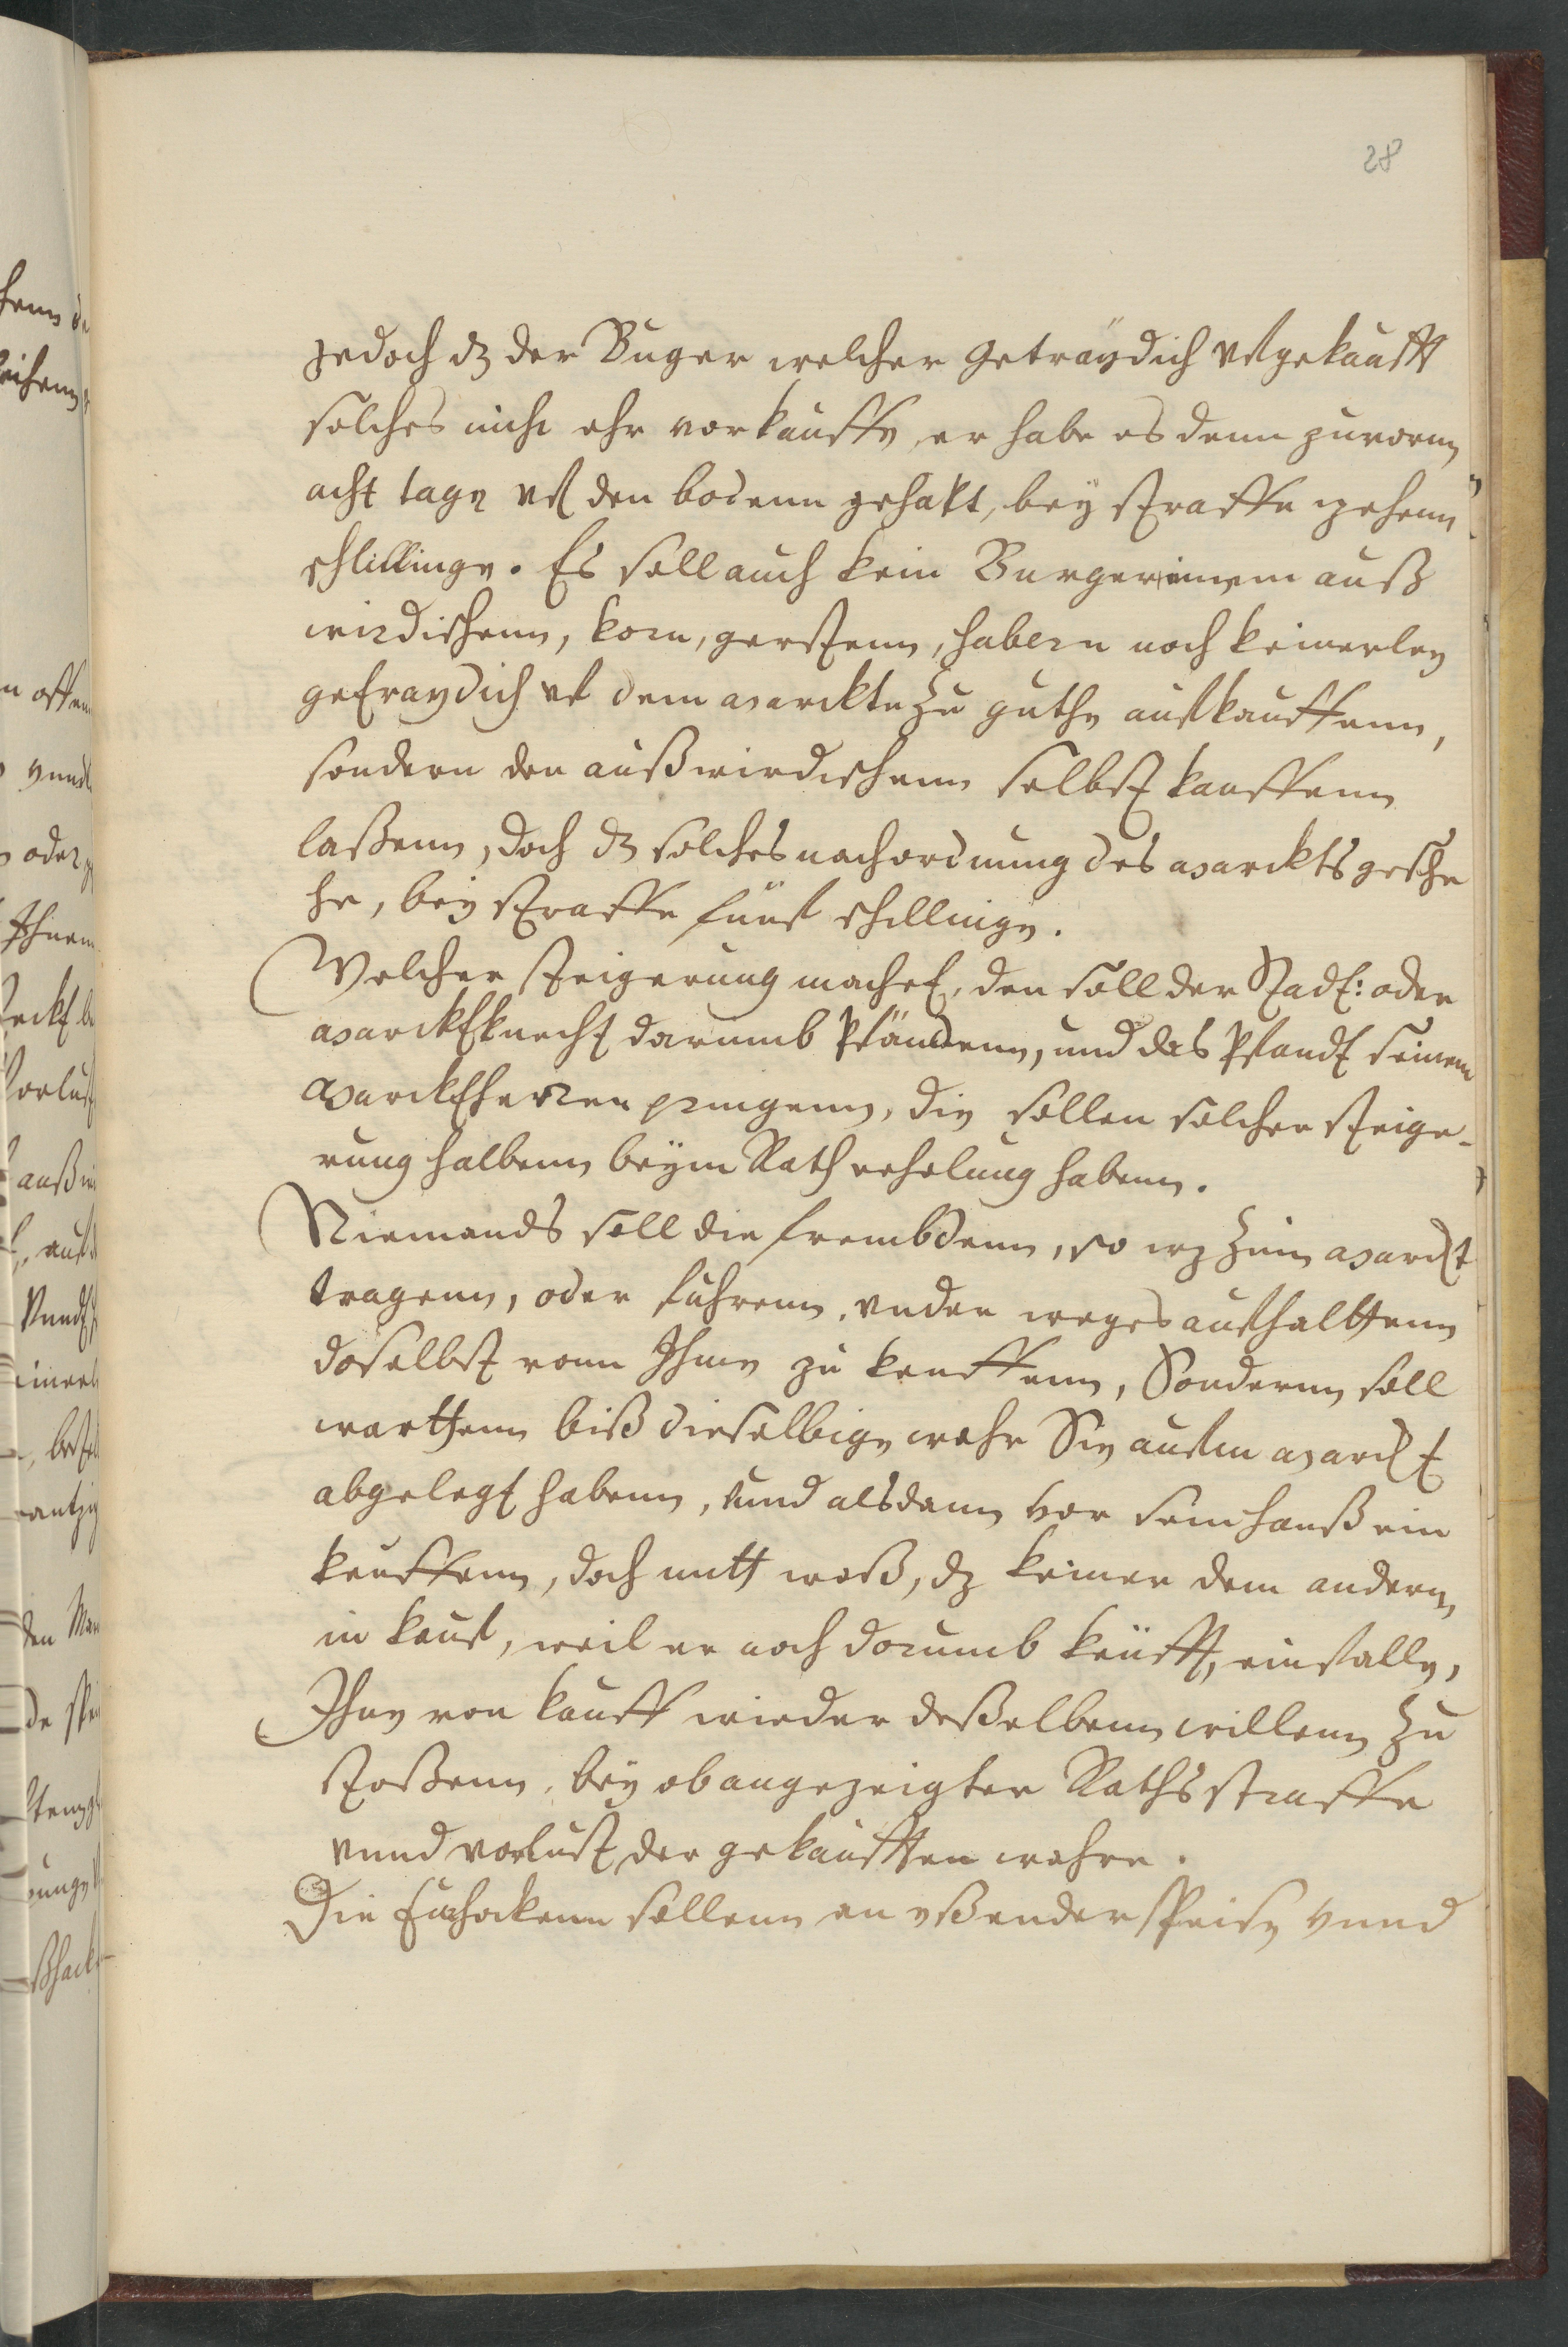 28
jedoch dz der Buger welcher Getraÿdich vfgekaufft
solches nicht ehr vorkauffe, er habe es denn zuvornn
acht tage vf den bodenn gehabt, beÿ straffe zehenn
schillinge. Es soll auch kein Burger einem auß
wirdischenn, korn, gerstenn, habern noch keinerley
getraydich vf dem marckte zu guthe aufkauffenn,
sondern den außwirdischenn selbst kauffenn
laßenn, doch dz solches nach ordnung des marckts gesche
he, beÿ straffe funf schillinge.
Welcher steigerung machet, den soll der Stadt: oder
marcktknecht darumb Pfändenn, und das Pfandt seinem
marcktherren pringenn, die sollen solcher steige-
rung halbenn beÿm Rath erholung habenn.
Niemands soll die frembdenn, so wz zum marckt
tragenn, oder fuhrenn, under weges aufhalttenn
doselbst vonn Ihme zu keuffenn, Sondernn soll
warttenn biß dieselbige wahr Sie aufm marckt
abgelegt habenn, und alsdann vor sein hauß ein
keuffenn, doch mitt waß, dz keiner dem andern,
in kauf, weil er noch dorumb keüfft, einfalle,
Ihne von kauff wieder deßelbenn willenn zu
stoßenn, beÿ obangezeigter Raths straffe
vnnd vorlust der gekaufften wahre.
Die furhockenn sollenn an eßender speise vnnd